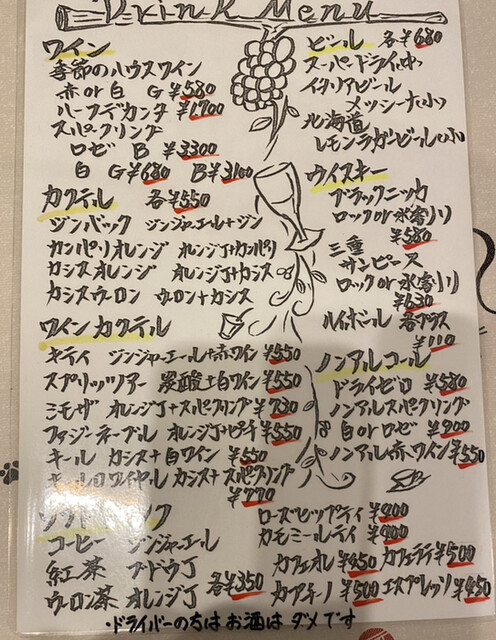 Drink Menu
ワイン
季節のハウスワイン
赤or白 G ¥580
ハーフデカンタ ¥1700
スパークリング
ロゼ B ¥3300
白 G ¥680 B ¥3100
カクテル 各¥550
ジンバック ジンジャーエール+ジン
カンパリオレンジ オレンジJ+カンパリ
カシスオレンジ オレンジJ+カシス
カシスウーロン ウーロン+カシス
ワインカクテル
キティ ジンジャーエール+赤ワイン ¥550
スプリッツァー 炭酸+白ワイン ¥550
ミモザ オレンジJ+スパークリング ¥730
ファジーネーブル オレンジJ+ピーチ ¥550
キール カシス+白ワイン ¥550
キールロワイヤル カシス+スパークリング
¥770
ソフトドリンク
コーヒー ジンジャエール
紅茶 ブドウJ
ウーロン茶 オレンジJ 各¥350
ビール 各¥680
スーパードライ(中)
イタリアビール
メッシーナ(小)
北海道
レモンラガービール(小)
ウイスキー
ブラックニッカ
ロックor水割り
¥580
三重
サンピース
ロックor水割り
¥630
ハイボール 各プラス
¥110
ノンアルコール
ドライゼロ ¥580
ノンアルスパークリング
白orロゼ ¥900
ノンアル赤ワイン ¥550
ローズヒップティ ¥400
カモミールティ ¥400
カフェオレ ¥450 カフェラテ ¥500
カプチーノ ¥500 エスプレッソ ¥450
・ドライバーの方はお酒はダメです